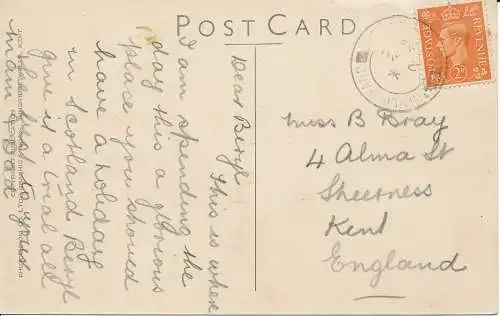 POST CARD
Dear Beryl
This is where
I am spending the
day this a glorious
place you should
have a holiday
in Scotland Beryl
give it a trial all
the best to your
mam
Miss B Bray
4 Alma St
Sheerness
Kent
England
POSTAGE
REVENUE